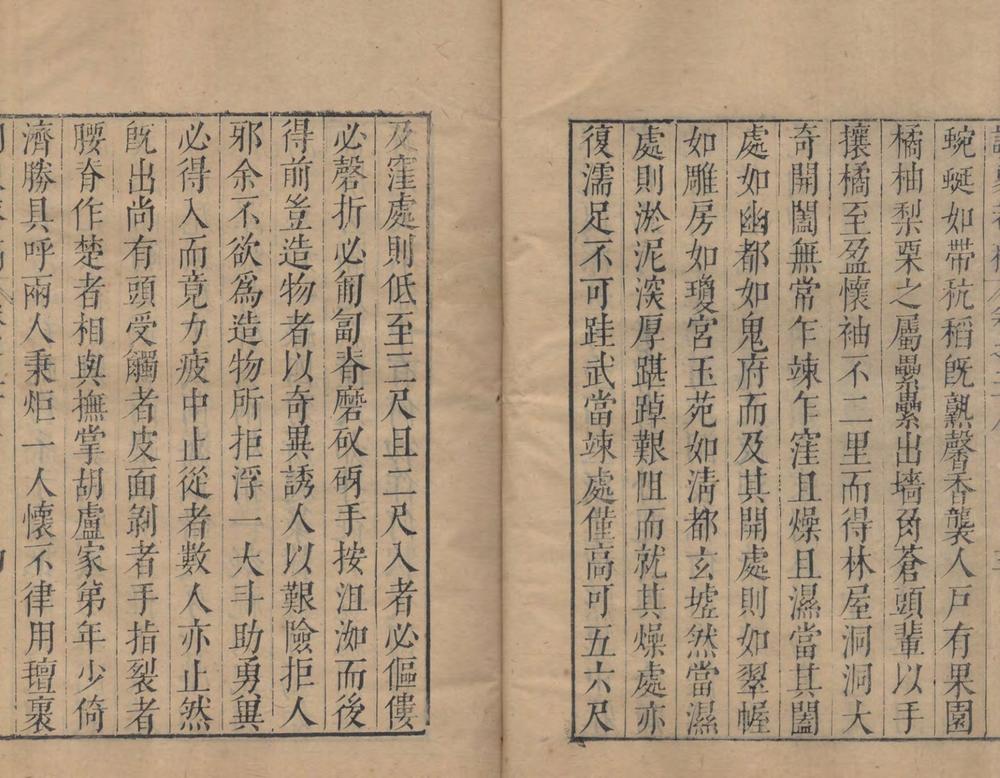 蜿蜒如帶秔稻旣熟馨香襲人戶有果園
橘柚梨栗之屬纍纍出墻角蒼頭輩以手
攘橘至盈懷袖不二里而得林屋洞洞大
奇開闔無常乍竦乍窪且燥且濕當其闔
處如幽都如鬼府而及其開處則如翠幄
如雕房如瓊宮玉苑如淸都玄墟然當濕
處則淤泥深厚踸踔艱阻而就其燥處亦
復濡足不可跬武當竦處僅高可五六尺
及窪處則低至三尺且二尺入者必傴僂
必磬折必匍匐脊磨砐硪手按沮洳而後
得前豈造物者以奇異誘人以艱險拒人
邪余不欲爲造物所拒浮一大斗助勇異
必得入而竟力疲中止從者數人亦止然
旣出尚有頭受觸者皮面剝者手指裂者
腰脊作楚者相與撫掌胡盧家第年少倚
濟勝具呼兩人秉炬一人懷不律用璮裹